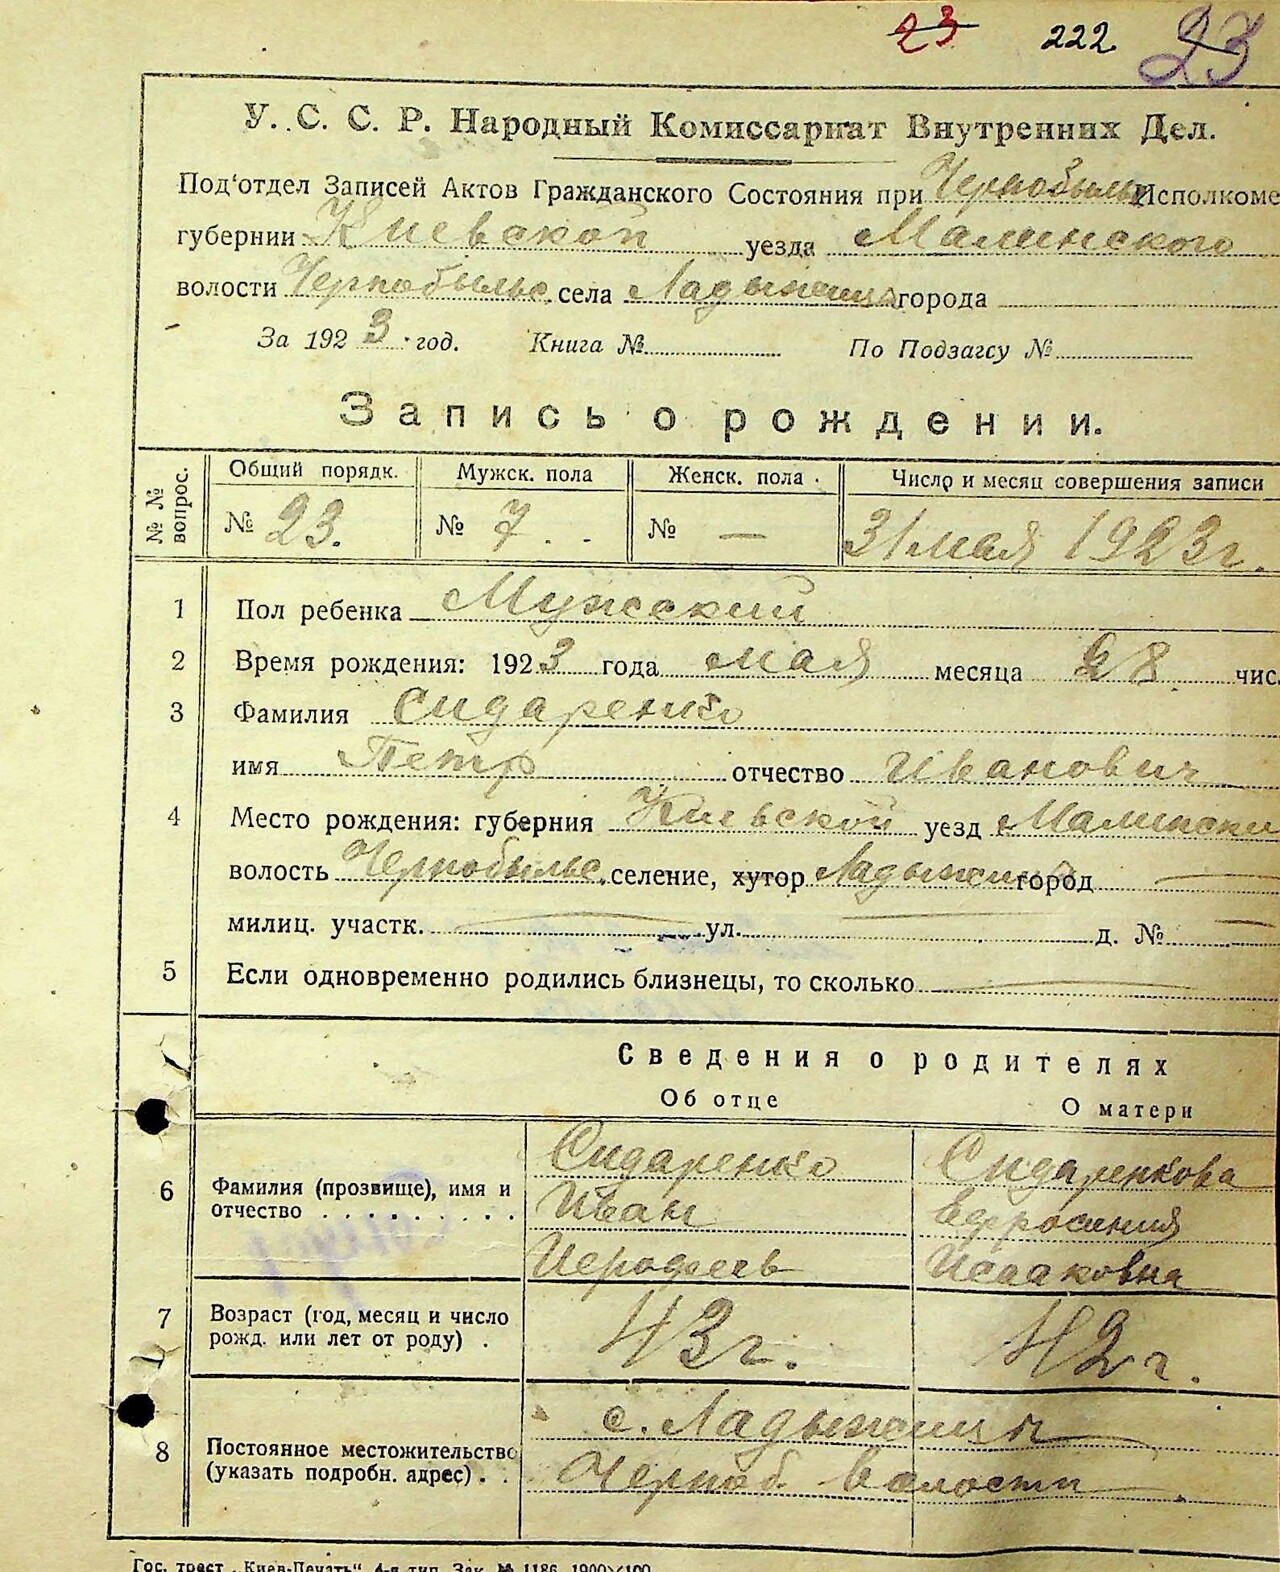 23 222. 23
У. С. С. Р. Народный Комиссариат Внутренних Дел.
Под'отдел Записей Актов Гражданского Состояния при Чернобыльс Исполкоме
губернии Киевской уезда Малинского
волости Чернобыльс. села Ладыжичи города
За 1923 год. Книга № По Подзагсу №
Запись о рождении.
№ № вопрос. Общий порядк. Мужск. пола Женск. пола Число и месяц совершения записи
№ 23. № 7 № — 31 мая 1923 г.
1 Пол ребенка Мужский
2 Время рождения: 1923 года мая месяца 28 чис.
3 Фамилия Сидаренко
имя Петр отчество Иванович
4 Место рождения: губерния Киевской уезд Малински
волость Чернобыльс. селение, хутор Ладыжичи город —
милиц. участк. — ул. — д. № —
5 Если одновременно родились близнецы, то сколько —
Сведения о родителях
Об отце О матери
6 Фамилия (прозвище), имя и отчество . . . . . . . . .
Сидаренко Сидаренкова
Иван Ефросиния
Иерофеев Исааковна
7 Возраст (год, месяц и число рожд. или лет от роду) .
43 г. 42 г.
8 Постоянное местожительство (указать подробн. адрес) . .
с. Ладыжичи
Черноб. волости
Гос. трест „Киев-Печать“ 4-я тип. Зак. № 1186. 1900×100